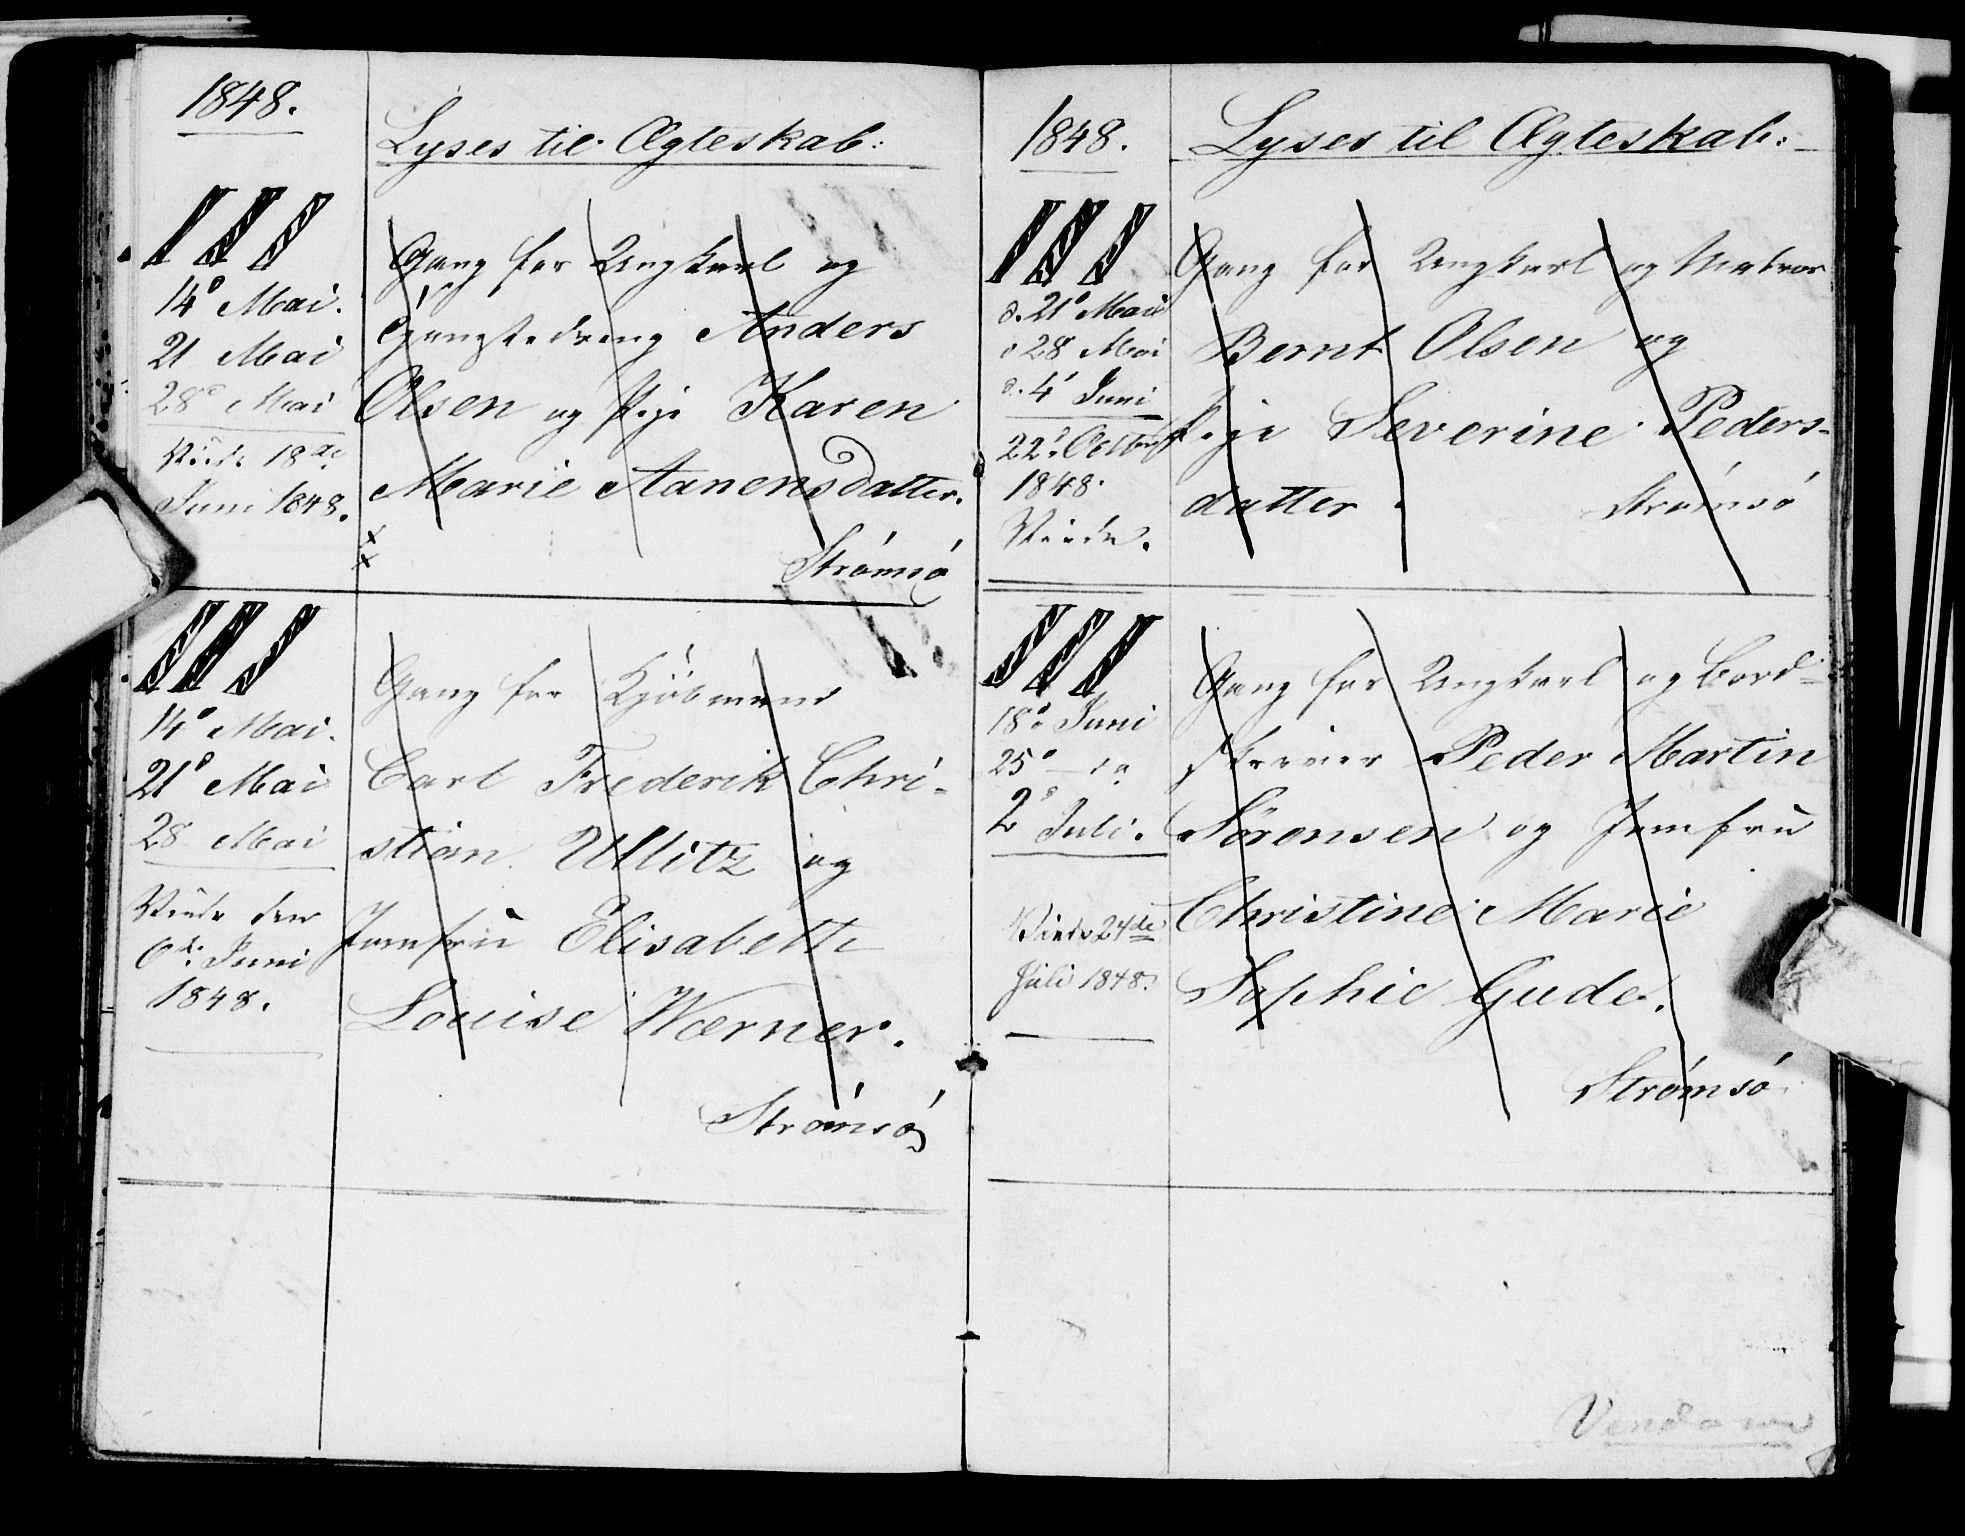 1848.
Lyses til Ægteskab:
III
14de Mai.
21 Mai
28de Mai
Viede 18de
Juni 1848.
Gang for Ungkarl og
Anders
Olsen og Pige Karen
Marie Aanensdatter.
Strømsø
III
14de Mai.
21de Mai
28 Mai
Viede den
6te Juni
1848.
Gang for Kjøbmand
Carl Frederik Chri-
stian Ullitz og
Jomfru Elisabeth
Louise Wærner.
Strømsø
1848.
Lyses til Ægteskab:
III
d. 21de Mai
d 28 Mai
d. 4de Juni
22de Octbr
1848.
Viede.
Gang for Ungkarl og Matros
Bernt Olsen og
Pige Severine Peders-
datter.
Strømsø
III
18de Juni
25de do
2de Juli.
Viede 24de
Juli 1848.
Gang for Ungkarl og Bord-
skriver Peder Martin
Sørensen og Jomfru
Christine Marie
Sophie Gude.
Strømsø